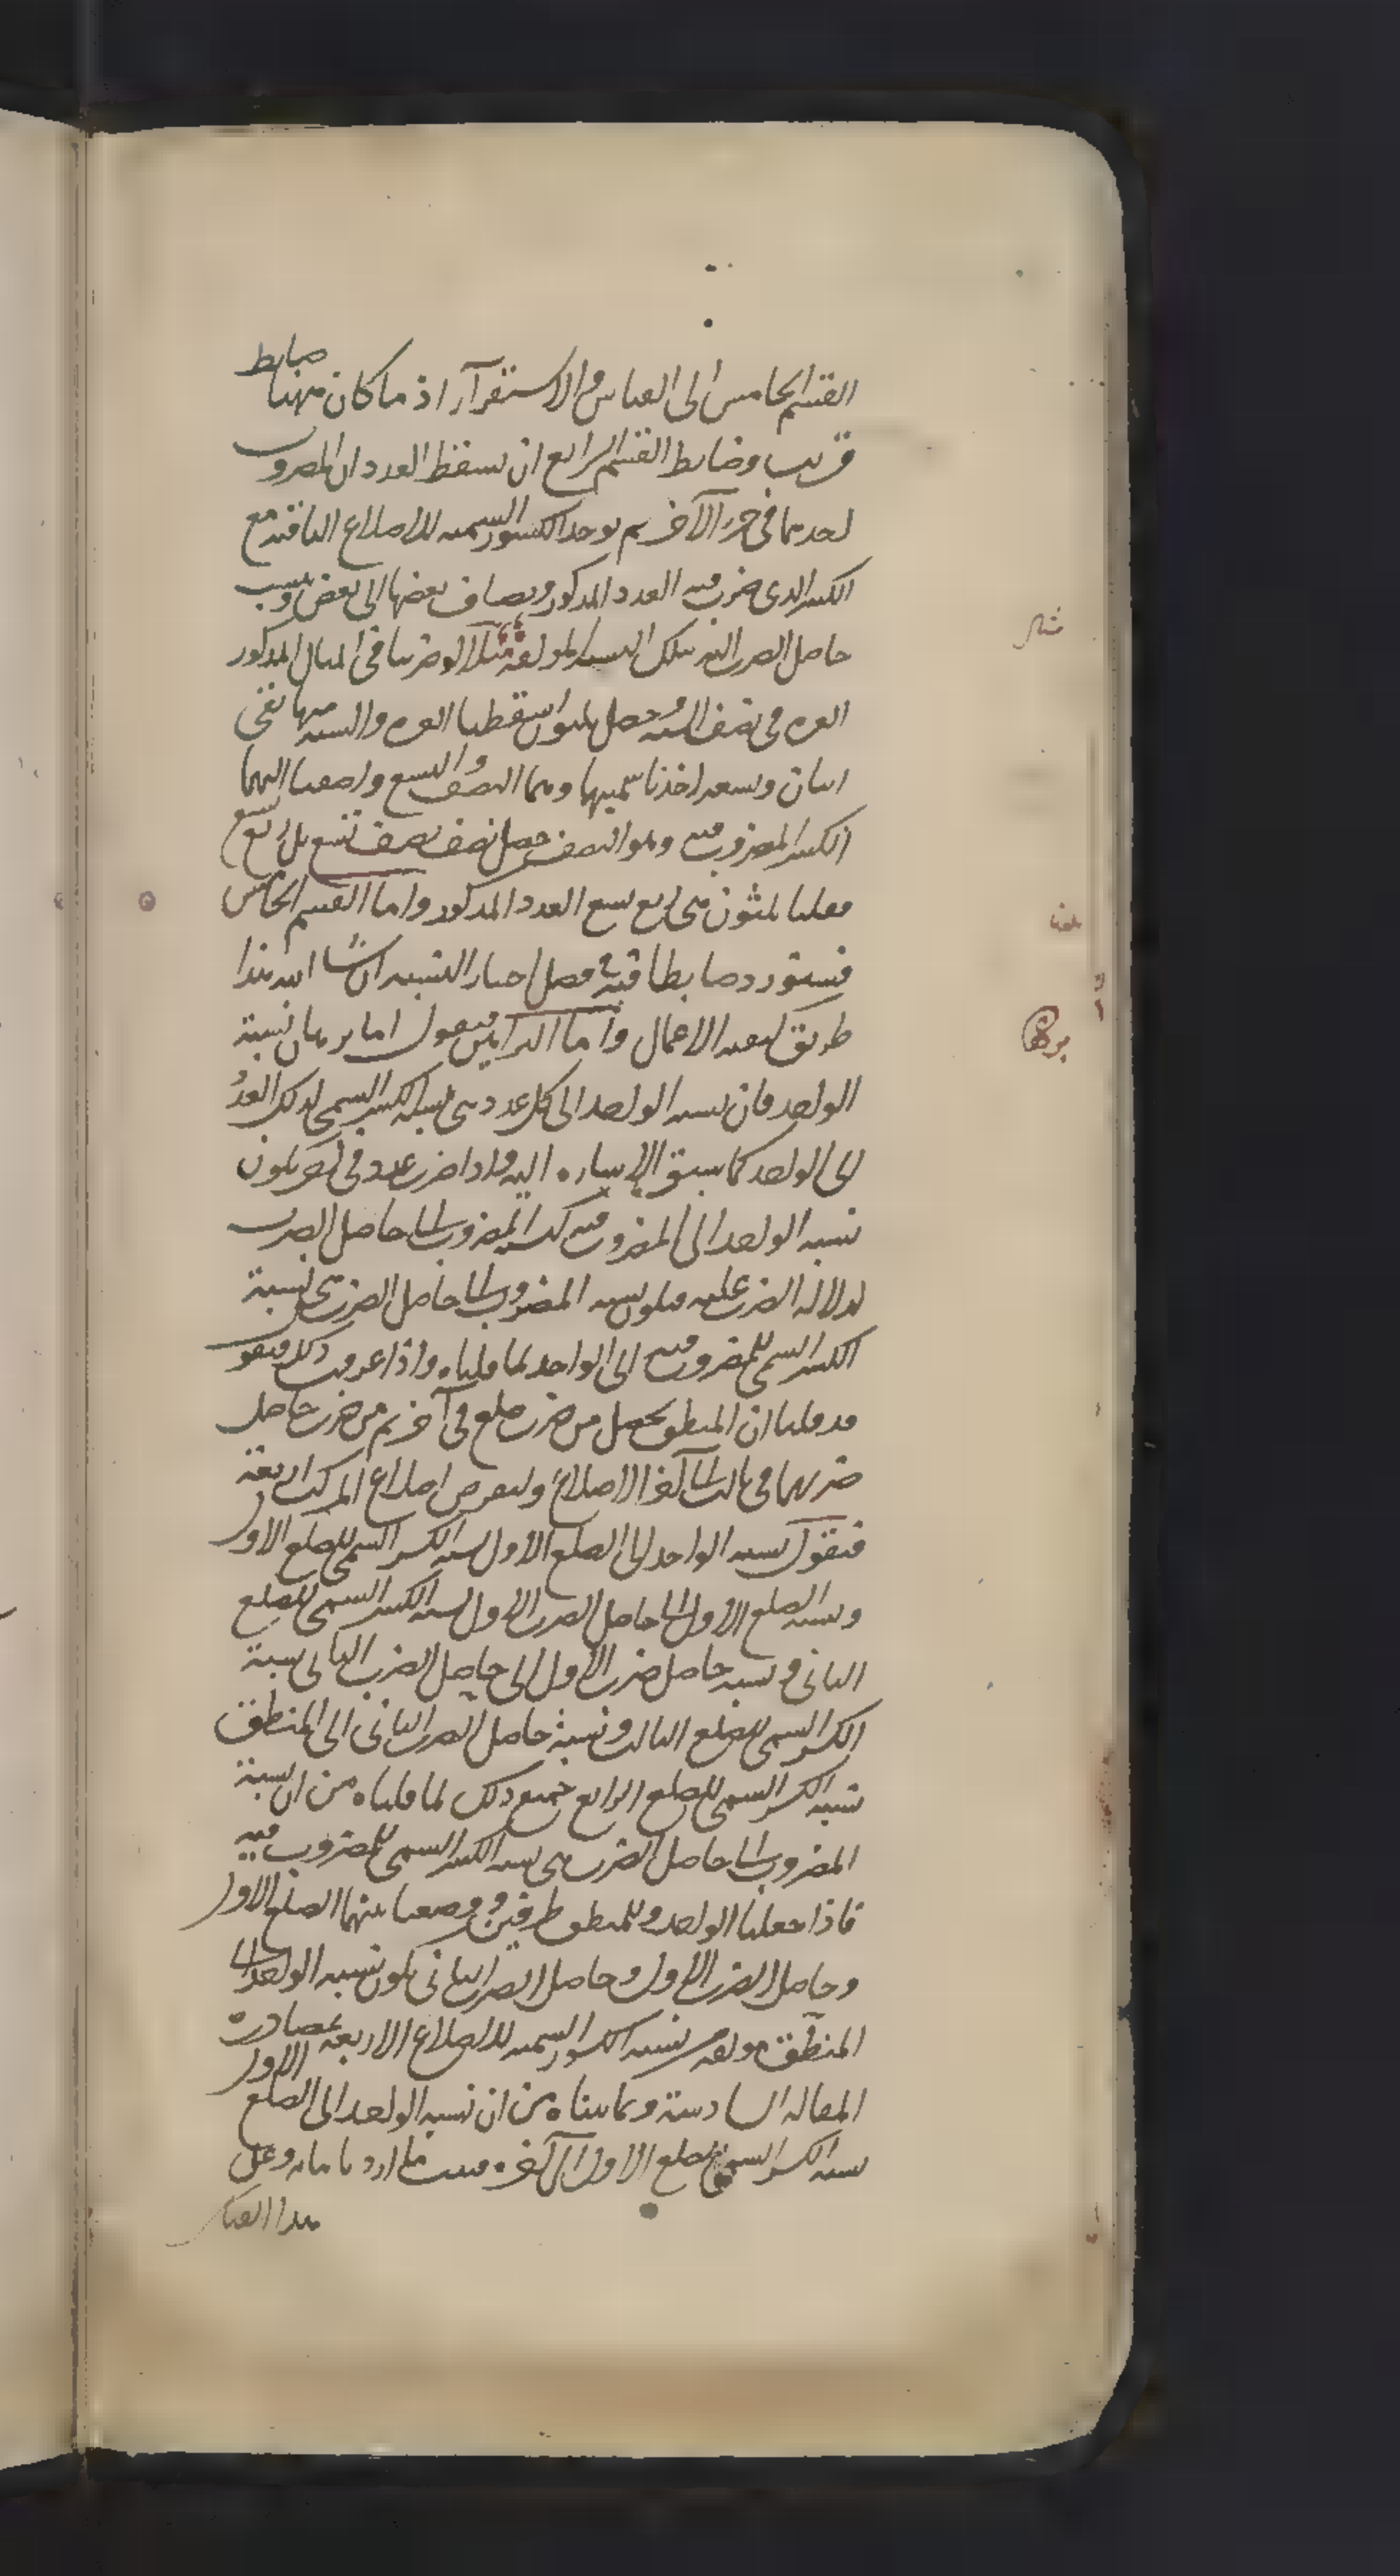 القسم الخامس الى القياس والاستقرآر اذ ما كان مهنا ضابط
قريب وضابط القسم الرابع ان يسقط العددان المضروب
احدهما في جزء الآخر ثم يوخذ الكسور السمية للاضلاع الباقية مع
الكسر الذي ضرب فيه العدد المذكور ويضاف بعضها الى بعض وينسب
حاصل الضرب اليه بتلك النسبة المولفة مثلا لو ضربنا في المثال المذكور
العشرة في نصف الستة وحصل ثلثون اسقطنا العشرة والستة منها بقى
اثنان وتسعة اخذنا سميهما وهما النصف والتسع واضفنا اليهما
الكسر المضروب فيه وهو النصف حصل نصف نصف تسع بل ربع تسع
فقلنا ثلثون هى ربع تسع العدد المذكور واما القسم الخامس
فسنورد ضابطا فيه فى فصل اختبار النسبة ان شا الله هذا
طريق كيفية الاعمال واما البراهين فنقول اما برهان نسبة
الواحد فان نسبة الواحد الى كل عدد هى نسبة الكسر السمى لذلك العدد
الى الواحد كما سبق الاشاره اليه واذا ضرب عدد فى آخر يكون
نسبة الواحد الى المضروب فيه كنسبة المضروب الى حاصل الضرب
لدلالة الضرب عليه فيكون نسبة المضروب الى حاصل الضرب هى نسبة
الكسر السمى للمضروب فيه الى الواحد لما قلناه واذا عرفت ذلك فنقول
قد قلنا ان المنطق يحصل من ضرب ضلع فى آخر ثم من ضرب حاصل
ضربهما فى ثالث الى آخر الاضلاع ولنفرض اضلاع المركب اربعة
فنقول نسبة الواحد الى الضلع الاول نسبة الكسر السمى للضلع الاول
ونسبة الضلع الاول الى حاصل الضرب الاول نسبة الكسر السمى للضلع
الثانى ونسبة حاصل ضرب الاول الى حاصل الضرب الثانى نسبة
الكسر السمى للضلع الثالث ونسبة حاصل الضرب الثانى الى المنطق
نسبة الكسر السمى للضلع الرابع جميع ذلك لما قلناه من ان نسبة
المضروب الى حاصل الضرب هى نسبة الكسر السمى للمضروب فيه
فاذا جعلنا الواحد والمنطق طرفين ووضعنا بينهما الضلع الاول
وحاصل الضرب الاول وحاصل الضرب الثانى يكون نسبة الواحد الى
المنطق مولفة من نسبة الكسور السمية للاضلاع الاربعة بمصادرة
المقالة السادسة وبما بيناه من ان نسبة الواحد الى الضلع الاول
نسبة الكسر السمى للضلع الاول الى آخره فثبت ما اردنا بيانه وعلى
هذا القياس
برهان